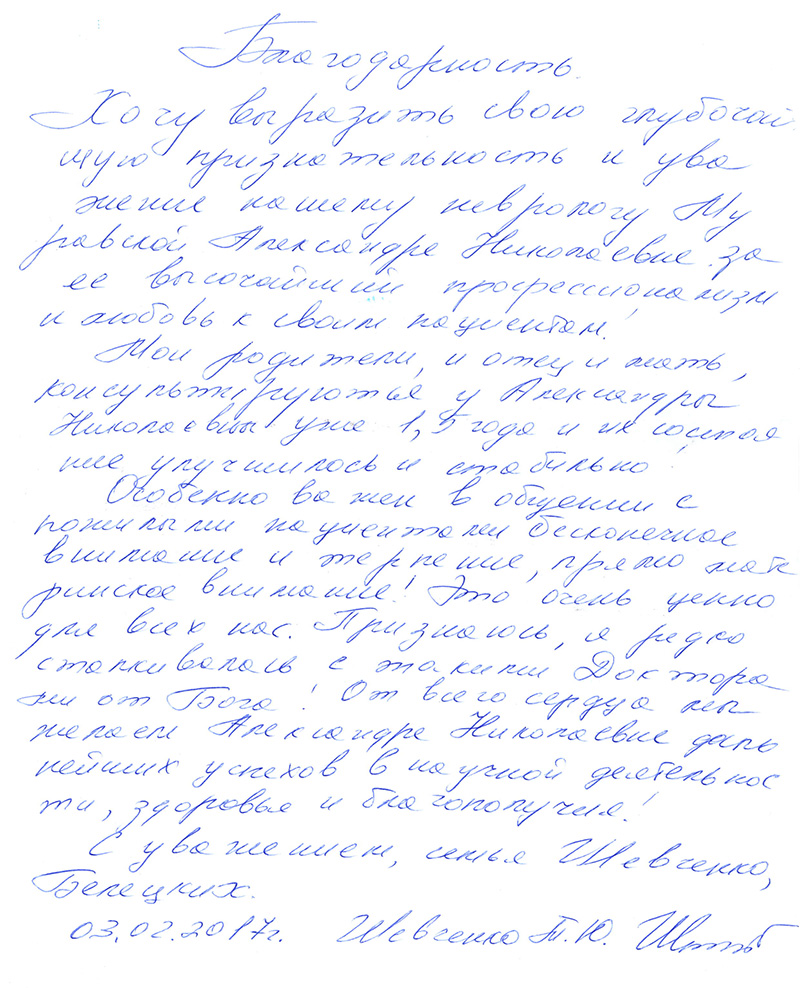 Благодарность.
Хочу выразить свою глубочай
шую признательность и ува
жение нашему неврологу Му
равской Александре Николаевне за
ее высочайший профессионализм
и любовь к своим пациентам!
Мои родители, и отец и мать,
консультируются у Александры
Николаевны уже 1,5 года и их состоя
ние улучшилось и стабильно!
Особенно важен в общении с
пожилыми пациентами бесконечное
внимание и терпение, прямо мате
ринское внимание! Это очень ценно
для всех нас. Признаюсь, я редко
сталкивалась с такими Доктора
ми от Бога! От всего сердца мы
желаем Александре Николаевне даль
нейших успехов в научной деятельнос
ти, здоровья и благополучия!
С уважением, семья Шевченко,
Белецких.
03.02.2017г. Шевченко Т.Ю.